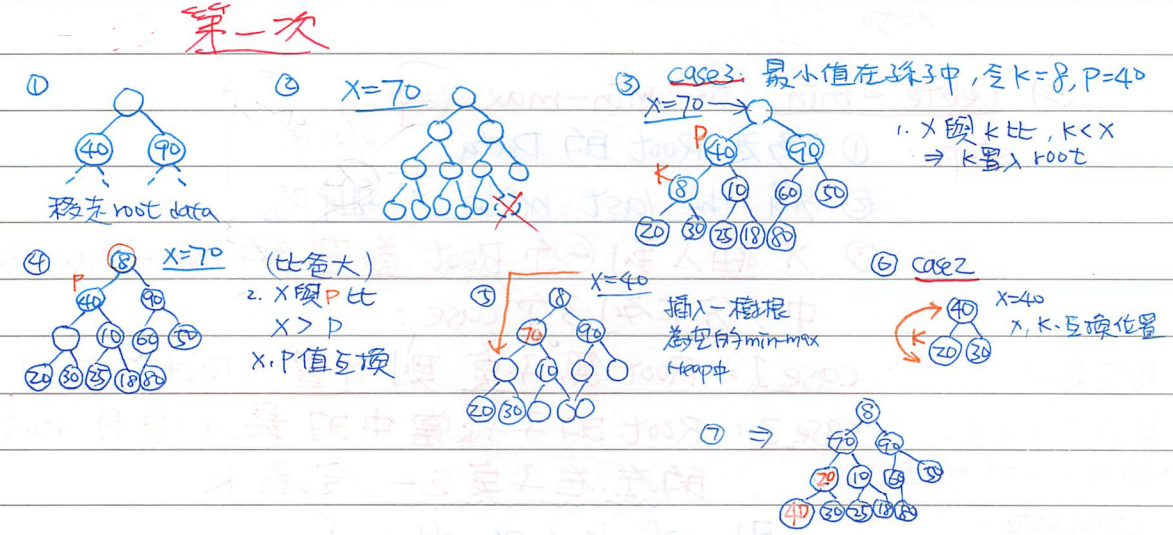 第一次
①
40 90
移走root data
② X=70
③ case3. 最小值在孫子中,令K=8,P=40
X=70
P 40 90
K 8 10 60 50
20 30 25 18 80
1. X與K比,K<X
⇒ K置入root
④ 8 X=70
P 40 90
10 60 50
20 30 25 18 80
(比爸大)
2. X與P比
X>P
X、P值互換
⑤ X=40
8
70 90
10
20 30
插入一樹根
為空的min-max
Heap中
⑥ case2
40 X=40
K X, K.互換位置
20 30
⑦ ⇒
8
70 90
20 10 60 50
40 30 25 18 80